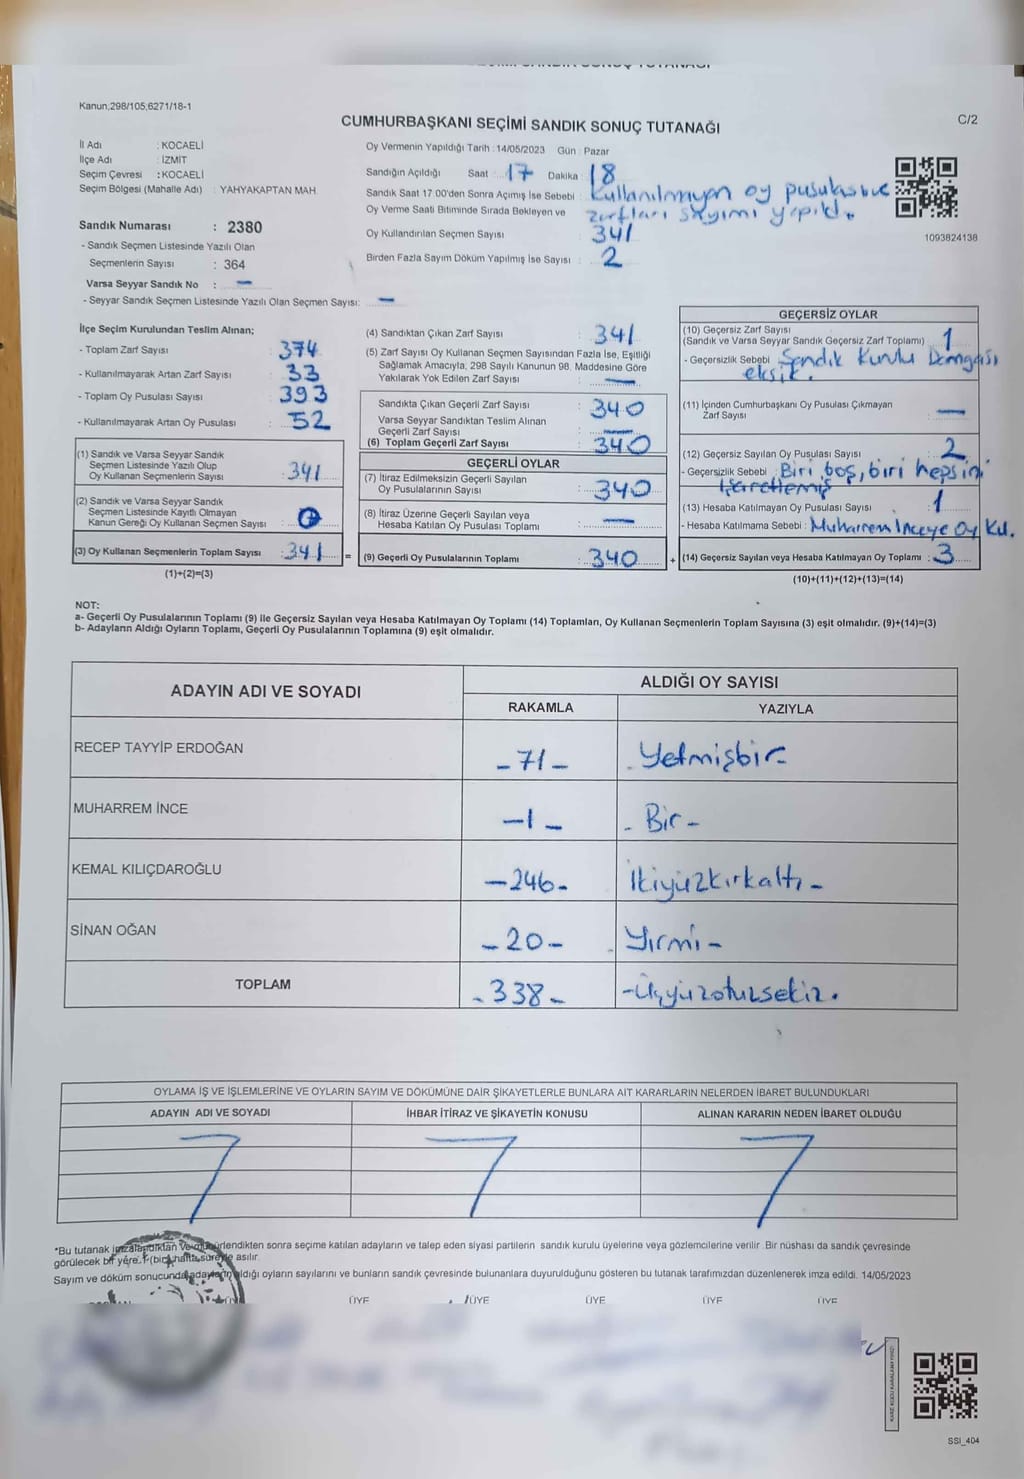 Kanun;298/105;6271/18-1
CUMHURBAŞKANI SEÇİMİ SANDIK SONUÇ TUTANAĞI
C/2
İl Adı : KOCAELİ
İlçe Adı : İZMİT
Seçim Çevresi : KOCAELİ
Seçim Bölgesi (Mahalle Adı) : YAHYAKAPTAN MAH.
Oy Vermenin Yapıldığı Tarih : 14/05/2023 Gün : Pazar
Sandığın Açıldığı Saat : 17 Dakika : 18
Sandık Saat 17.00'den Sonra Açımış İse Sebebi : Kullanılmayan oy pusulası ve
zarfları sayımı yapıldı.
Oy Verme Saati Bitiminde Sırada Bekleyen ve
Oy Kullandırılan Seçmen Sayısı : 341
Birden Fazla Sayım Döküm Yapılmış İse Sayısı : 2
1093824138
Sandık Numarası : 2380
- Sandık Seçmen Listesinde Yazılı Olan
Seçmenlerin Sayısı : 364
Varsa Seyyar Sandık No : —
- Seyyar Sandık Seçmen Listesinde Yazılı Olan Seçmen Sayısı: —
İlçe Seçim Kurulundan Teslim Alınan;
- Toplam Zarf Sayısı : 374
- Kullanılmayarak Artan Zarf Sayısı : 33
- Toplam Oy Pusulası Sayısı : 393
- Kullanılmayarak Artan Oy Pusulası : 52
(1) Sandık ve Varsa Seyyar Sandık
Seçmen Listesinde Yazılı Olup
Oy Kullanan Seçmenlerin Sayısı : 341
(2) Sandık ve Varsa Seyyar Sandık
Seçmen Listesinde Kayıtlı Olmayan
Kanun Gereği Oy Kullanan Seçmen Sayısı :
(3) Oy Kullanan Seçmenlerin Toplam Sayısı : 341 =
(1)+(2)=(3)
(4) Sandıktan Çıkan Zarf Sayısı : 341
(5) Zarf Sayısı Oy Kullanan Seçmen Sayısından Fazla İse, Eşitliği
Sağlamak Amacıyla, 298 Sayılı Kanunun 98. Maddesine Göre
Yakılarak Yok Edilen Zarf Sayısı : —
Sandıkta Çıkan Geçerli Zarf Sayısı : 340
Varsa Sandıktan Teslim Alınan
Geçerli Zarf Sayısı : —
(6) Toplam Geçerli Zarf Sayısı : 340
GEÇERLİ OYLAR
(7) İtiraz Edilmeksizin Geçerli Sayılan
Oy Pusulalarının Sayısı : 340
(8) İtiraz Üzerine Geçerli Sayılan veya
Hesaba Katılan Oy Pusulası Toplamı : —
(9) Geçerli Oy Pusulalarının Toplamı : 340 +
GEÇERSİZ OYLAR
(10) Geçersiz Zarf Sayısı
(Sandık ve Varsa Seyyar Sandık Geçersiz Zarf Toplamı) : 1
- Geçersizlik Sebebi : Sandık Kurulu Damgası
eksik.
(11) İçinden Cumhurbaşkanı Oy Pusulası Çıkmayan
Zarf Sayısı : —
(12) Geçersiz Sayılan Oy Pusulası Sayısı : 2
- Geçersizlik Sebebi : Biri boş, biri hepsini
işaretlemiş
(13) Hesaba Katılmayan Oy Pusulası Sayısı : 1
- Hesaba Katılmama Sebebi : Muharrem İnceye Oy Kul.
(14) Geçersiz Sayılan veya Hesaba Katılmayan Oy Toplamı : 3
(10)+(11)+(12)+(13)=(14)
NOT:
a- Geçerli Oy Pusulalarının Toplamı (9) ile Geçersiz Sayılan veya Hesaba Katılmayan Oy Toplamı (14) Toplamları, Oy Kullanan Seçmenlerin Toplam Sayısına (3) eşit olmalıdır. (9)+(14)=(3)
b- Adayların Aldığı Oyların Toplamı, Geçerli Oy Pusulalarının Toplamına (9) eşit olmalıdır.
ADAYIN ADI VE SOYADI
ALDIĞI OY SAYISI
RAKAMLA YAZIYLA
RECEP TAYYİP ERDOĞAN -71- - Yetmişbir-
MUHARREM İNCE -1- - Bir-
KEMAL KILIÇDAROĞLU -246- İkiyüzkırkaltı-
SİNAN OĞAN -20- -Yirmi-
TOPLAM -338- -Üçyüzotuzsekiz.
OYLAMA İŞ VE İŞLEMLERİNE VE OYLARIN SAYIM VE DÖKÜMÜNE DAİR ŞİKAYETLERLE BUNLARA AİT KARARLARIN NELERDEN İBARET BULUNDUKLARI
ADAYIN ADI VE SOYADI İHBAR İTİRAZ VE ŞİKAYETİN KONUSU ALINAN KARARIN NEDEN İBARET OLDUĞU
*Bu tutanak imzalandıktan ve mühürlendikten sonra seçime katılan adayların ve talep eden siyasi partilerin sandık kurulu üyelerine veya gözlemcilerine verilir. Bir nüshası da sandık çevresinde
görülecek bir yere 1 (bir) hafta süreyle asılır.
Sayım ve döküm sonucunda adayların aldığı oyların sayılarını ve bunların sandık çevresinde bulunanlara duyurulduğunu gösteren bu tutanak tarafımızdan düzenlenerek imza edildi. 14/05/2023
ÜYE ÜYE ÜYE ÜYE ÜYE
SSI_404